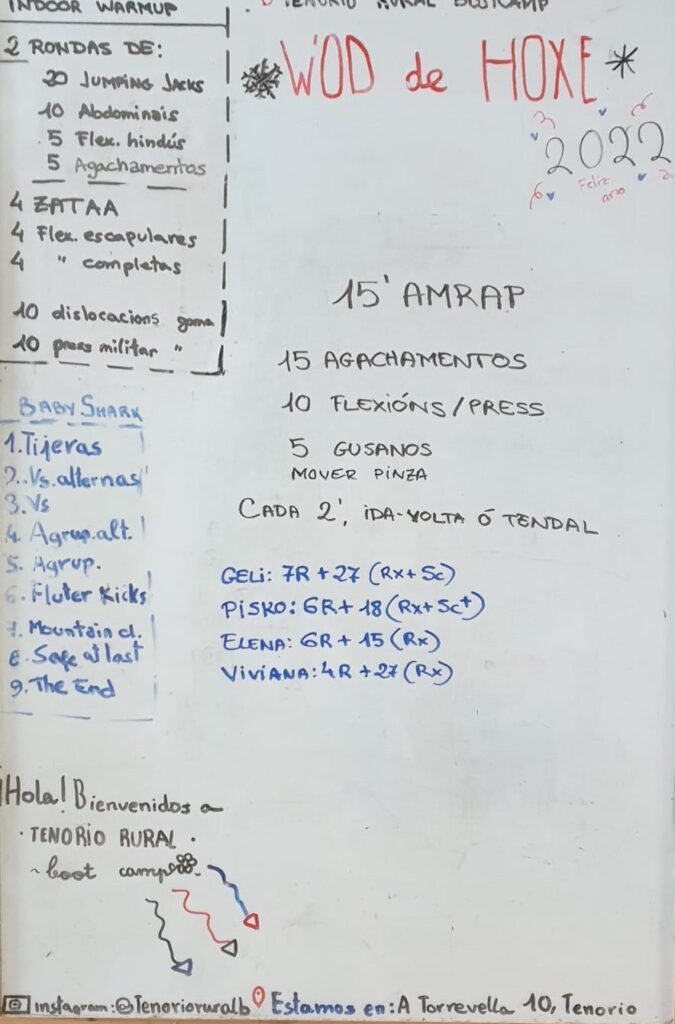 INDOOR WARMUP
2 RONDAS DE:
20 JUMPING JACKS
10 Abdominais
5 Flex. hindús
5 Agachamentos
4 ZATAA
4 Flex. escapulares
4 " completas
10 dislocacions goma
10 press militar "
BABY SHARK
1. Tijeras
2. Vs. alternas
3. Vs
4. Agrup. alt.
5. Agrup.
6. Fluter Kicks
7. Mountain cl.
8. Safe at last
9. The End
¡Hola! Bienvenidos a
· TENORIO RURAL ·
~ boot camp
TENORIO RURAL BOOTCAMP
WOD de HOXE
2022
Feliz
ano
15' AMRAP
15 AGACHAMENTOS
10 FLEXIÓNS/PRESS
5 GUSANOS
MOVER PINZA
CADA 2', IDA-VOLTA Ó TENDAL
GELI: 7R + 27 (Rx + Sc)
PISKO: 6R + 18 (Rx + Sc+)
ELENA: 6R + 15 (Rx)
VIVIANA: 4R + 27 (Rx)
instagram: @Tenorioruralb Estamos en: A Torrevella 10, Tenorio